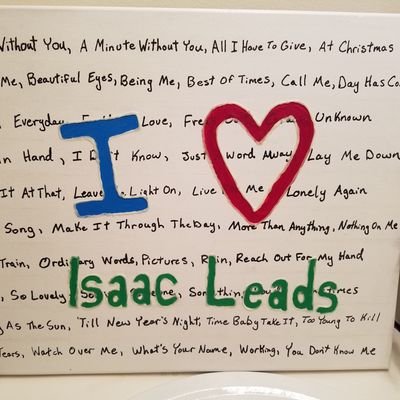 Without You, A Minute Without You, All I Have To Give, At Christmas
Me, Beautiful Eyes, Being Me, Best Of Times, Call Me, Day Has Co
, Everyday, Love, Fre Unknown
n Hand, I Don't Know, Just Word Away, Lay Me Down
It At That, Leave Light On, Live Me, Lonely Again
Song, Make It Through The Day, More Than Anything, Nothing On Me
Train, Ordinary Words, Pictures, Rain, Reach Out For My Hand
, So Lovely
As The Sun, 'Till New Year's Night, Time Baby Take It, Too Young To Kill
Tears, Watch Over Me, What's Your Name, Working, You Don't Know Me
I
Isaac Leads